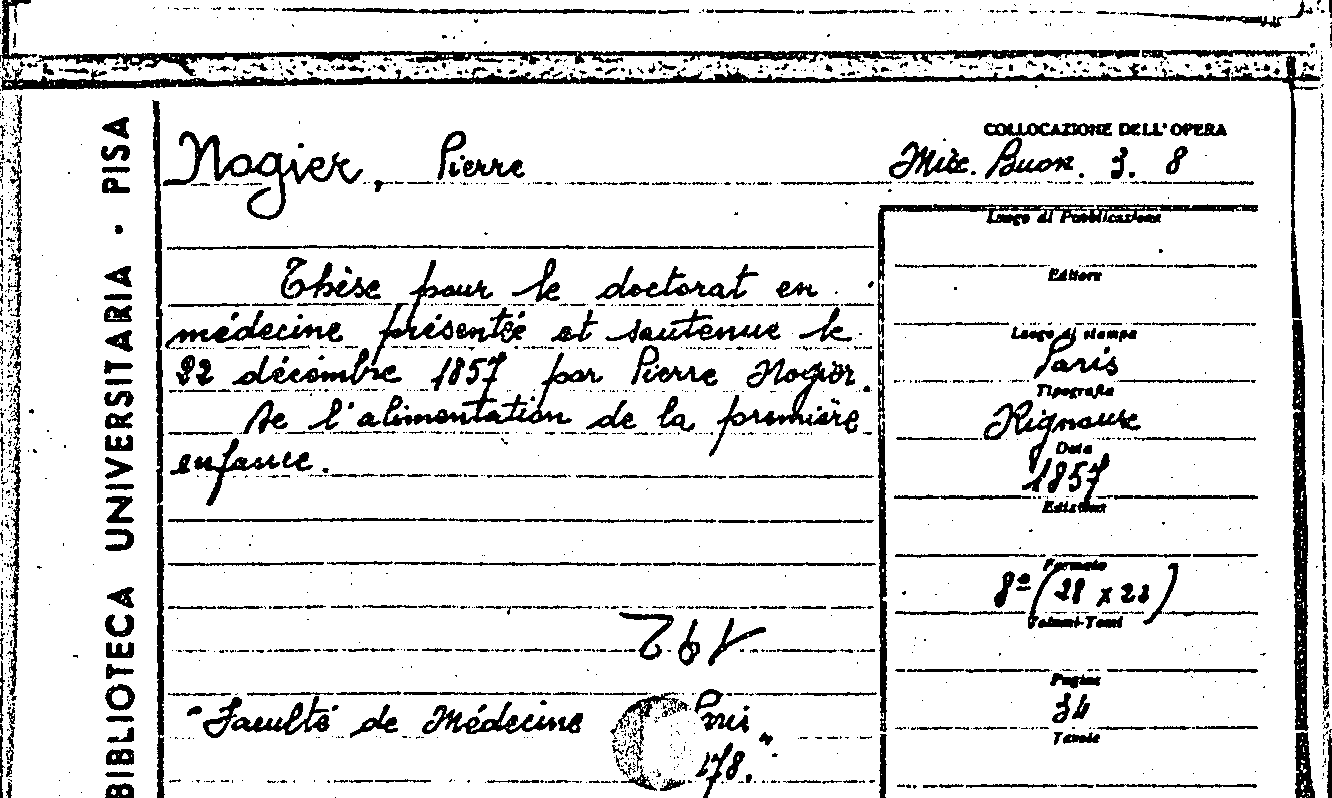 BIBLIOTECA UNIVERSITARIA · PISA
Nogier, Pierre
COLLOCAZIONE DELL'OPERA
Misc. Buon. 3. 8
Thèse pour le doctorat en
médecine présentée et soutenue le
22 décembre 1857 par Pierre Nogier.
De l'alimentation de la première
enfance.
"Faculté de Médecine Paris
178."
Luogo di Pubblicazione
Editore
Luogo di stampa
Paris
Tipografia
Rignoux
Data
1857
Edizione
Formato
8º (28 x 22)
Volumi-Tomi
Pagine
34
Tavole